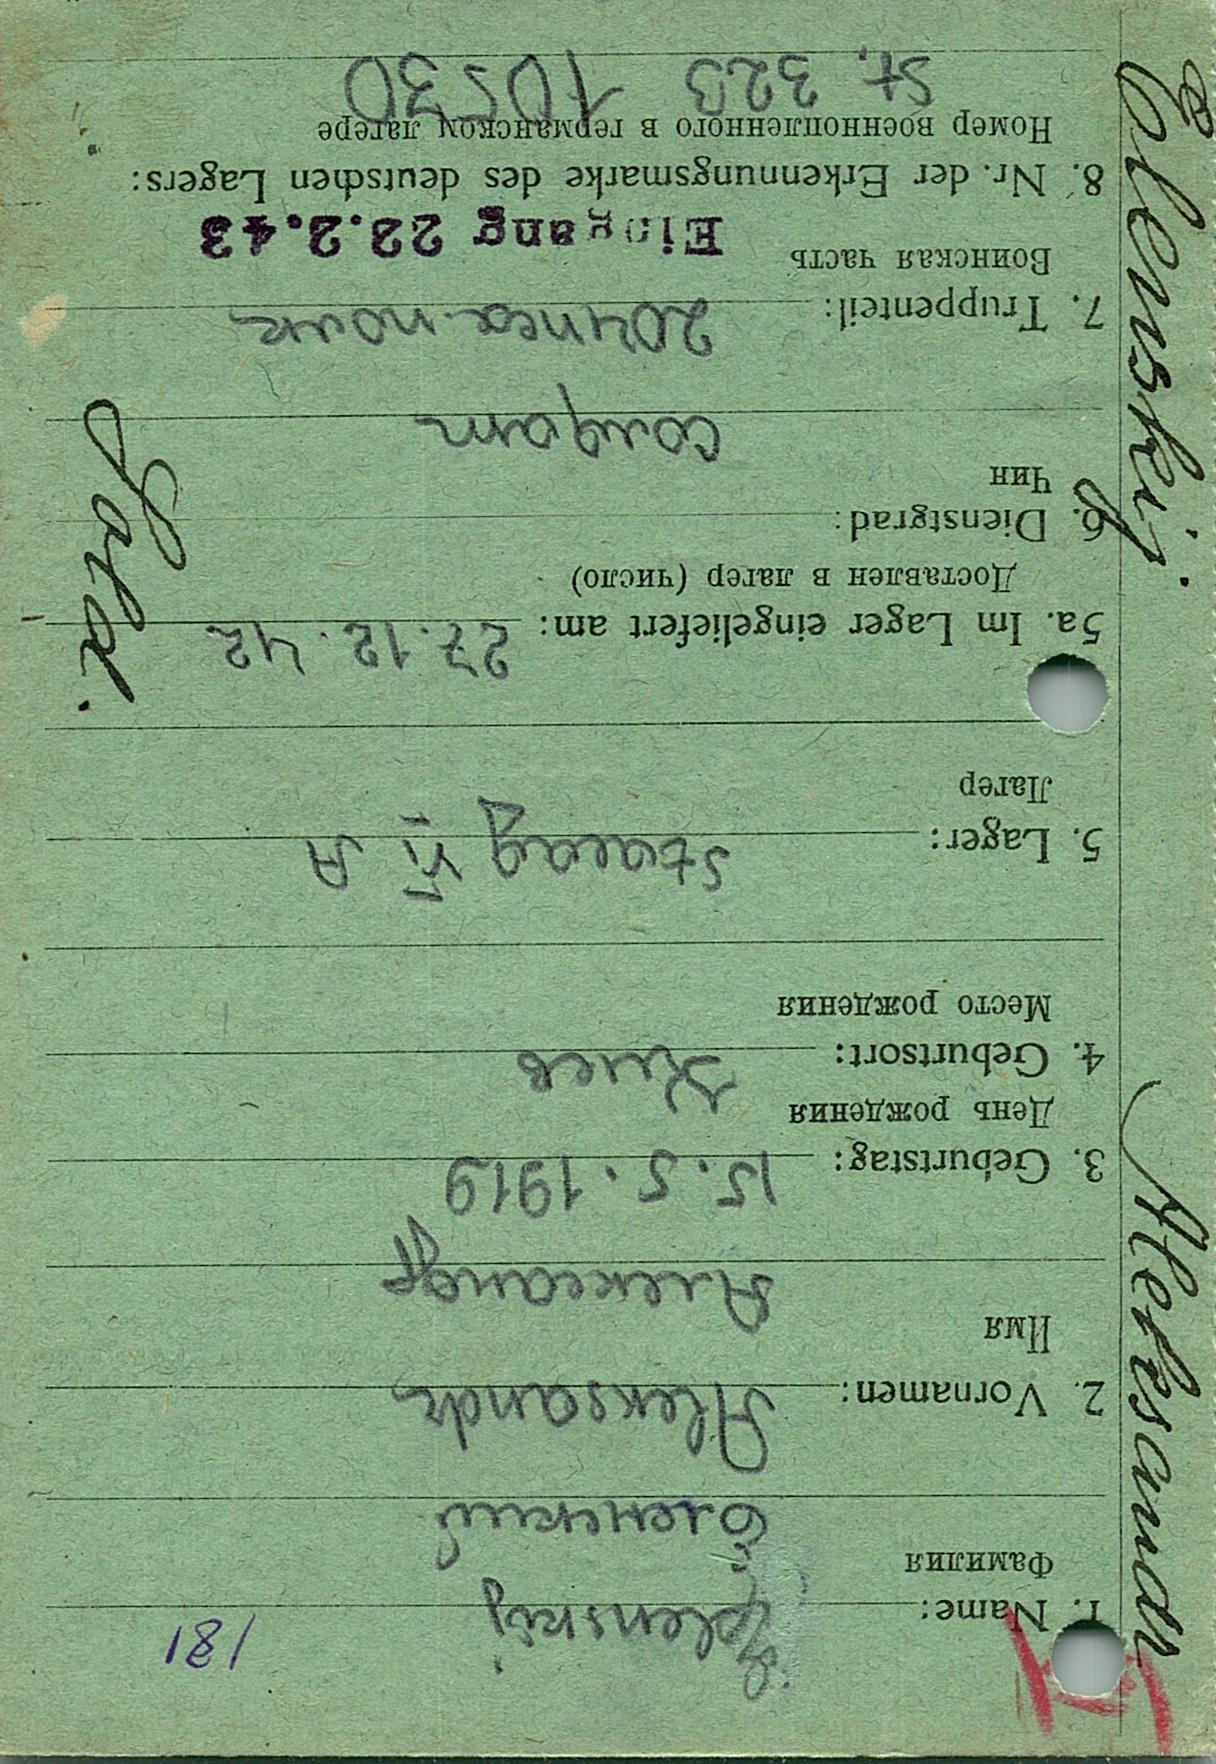 181
1. Name: Jelenskij
Фамилия
Еленский
2. Vornamen: Aleksandr
Имя
Александр
3. Geburtstag: 15.5.1919
День рождения
4. Geburtsort: Киев
Место рождения
5. Lager: Stalag VI A
Лагер
5a. Im Lager eingeliefert am: 27.12.42
Доставлен в лагер (число)
6. Dienstgrad:
Чин
солдат
7. Truppenteil:
Воинская часть
Eingang 22.2.43
8. Nr. der Erkennungsmarke des deutschen Lagers:
Номер военнопленного в германском лагере
St. 323 10530
Sold.
Elenskij.
Aleksandr